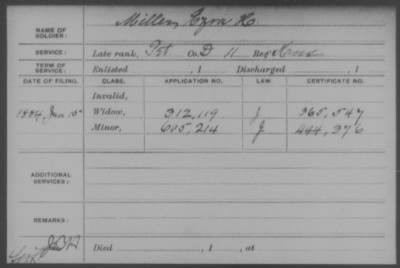 NAME OF SOLDIER: Miller, Ezra H.
SERVICE: Late rank, Pvt Co. D 11 Reg't Kans
TERM OF SERVICE: Enlisted , 1 Discharged , 1
DATE OF FILING. CLASS. APPLICATION NO. LAW. CERTIFICATE NO.
Invalid,
1884, Jan 10 Widow, 312,119 J 365,547
Minor, 605,214 J 444,376
ADDITIONAL SERVICES:
REMARKS:
Died , 1 , at